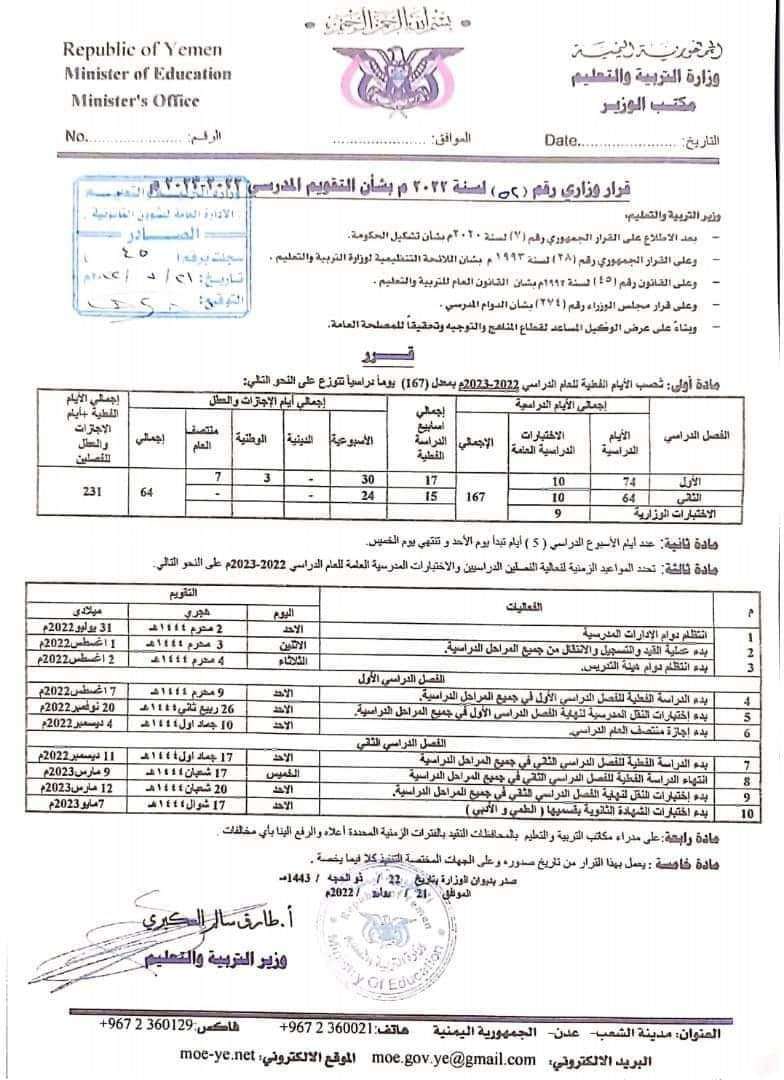 بسم الله الرحمن الرحيم
Republic of Yemen
Minister of Education
Minister's Office
الجمهورية اليمنية
وزارة التربية والتعليم
مكتب الوزير
No........................ الرقم:
الموافق: ........................
Date........................ التاريخ:
قرار وزاري رقم (٥٢) لسنة ٢٠٢٢ م بشأن التقويم المدرسي ٢٠٢٢-٢٠٢٣ م
الادارة العامة للشؤون القانونية
الصادر
سجلت برقم ( ٤٥ )
تاريخ:
التوقيع:
وزير التربية والتعليم،
- بعد الاطلاع على القرار الجمهوري رقم (٧) لسنة ٢٠٢٠م بشأن تشكيل الحكومة.
- وعلى القرار الجمهوري رقم (٢٨) لسنة ١٩٩٣ م بشأن اللائحة التنظيمية لوزارة التربية والتعليم .
- وعلى القانون رقم (٤٥) لسنة ١٩٩٢م بشأن القانون العام للتربية والتعليم .
- وعلى قرار مجلس الوزراء رقم (٢٧٤) بشأن الدوام المدرسي .
- وبناءً على عرض الوكيل المساعد لقطاع المناهج والتوجيه وتحقيقاً للمصلحة العامة.
قـــرر
مادة أولى: تُحسب الأيام الفعلية للعام الدراسي 2022-2023م بمعدل (167) يوماً دراسياً تتوزع على النحو التالي:
الفصل الدراسي
إجمالي الأيام الدراسية
الأيام الدراسية
الاختبارات الدراسية العامة
الإجمالي
إجمالي اسابيع الدراسة الفعلية
إجمالي أيام الإجازات والعطل
الأسبوعية
الدينية
الوطنية
منتصف العام
إجمالي
إجمالي الأيام الفعلية +أيام الإجازات والعطل للفصلين
الأول 74 10 167 17 30 - 3 7 64 231
الثاني 64 10 15 24 - - -
الاختبارات الوزارية 9
مادة ثانية: عدد أيام الأسبوع الدراسي ( 5 ) أيام تبدأ يوم الأحد و تنتهي يوم الخميس.
مادة ثالثة: تحدد المواعيد الزمنية لفعالية الفصلين الدراسيين والاختبارات المدرسية العامة للعام الدراسي 2022-2023م على النحو التالي.
م الفعاليات التقويم
اليوم هجري ميلادي
1 انتظام دوام الإدارات المدرسية الاحد 2 محرم ١٤٤٤هـ 31 يوليو2022م
2 بدء عملية القيد والتسجيل والانتقال من جميع المراحل الدراسية. الاثنين 3 محرم ١٤٤٤هـ 1 اغسطس2022م
3 بدء انتظام دوام هيئة التدريس. الثلاثاء 4 محرم ١٤٤٤هـ 2 اغسطس2022م
الفصل الدراسي الأول
4 بدء الدراسة الفعلية للفصل الدراسي الأول في جميع المراحل الدراسية. الاحد 9 محرم ١٤٤٤هـ 7 اغسطس2022م
5 بدء إختبارات النقل المدرسية لنهاية الفصل الدراسي الأول في جميع المراحل الدراسية. الاحد 26 ربيع ثاني ١٤٤٤هـ 20 نوفمبر2022م
6 بدء إجازة منتصف العام الدراسي. الاحد 10 جماد اول ١٤٤٤هـ 4 ديسمبر2022م
الفصل الدراسي الثاني
7 بدء الدراسة الفعلية للفصل الدراسي الثاني في جميع المراحل الدراسية الاحد 17 جماد اول ١٤٤٤هـ 11 ديسمبر2022م
8 انتهاء الدراسة الفعلية للفصل الدراسي الثاني في جميع المراحل الدراسية الخميس 17 شعبان ١٤٤٤هـ 9 مارس2023م
9 بدء إختبارات النقل لنهاية الفصل الدراسي الثاني في جميع المراحل الدراسية. الاحد 20 شعبان ١٤٤٤هـ 12 مارس2023م
10 بدء إختبارات الشهادة الثانوية بقسميها ( العلمي و الأدبي ) الاحد 17 شوال ١٤٤٤هـ 7مايو2023م
مادة رابعة: على مدراء مكاتب التربية والتعليم بالمحافظات التقيد بالفترات الزمنية المحددة أعلاه والرفع الينا بأي مخالفات .
مادة خامسة : يعمل بهذا القرار من تاريخ صدوره وعلى الجهات المختصة التنفيذ كلا فيما يخصه .
صدر بديوان الوزارة بتاريخ / 22 ذو الحجه / 1443هـ
الموافق / 21 يوليو / 2022م
Republic of Yemen
Ministry Of Education
أ. طارق سالم العكبري
وزير التربية والتعليم
العنوان: مدينة الشعب- عدن- الجمهورية اليمنية هاتف: 360021 2 967+ فاكس: 360129 2 967+
البريد الالكتروني: moe.gov.ye@gmail.com الموقع الالكتروني: moe-ye.net